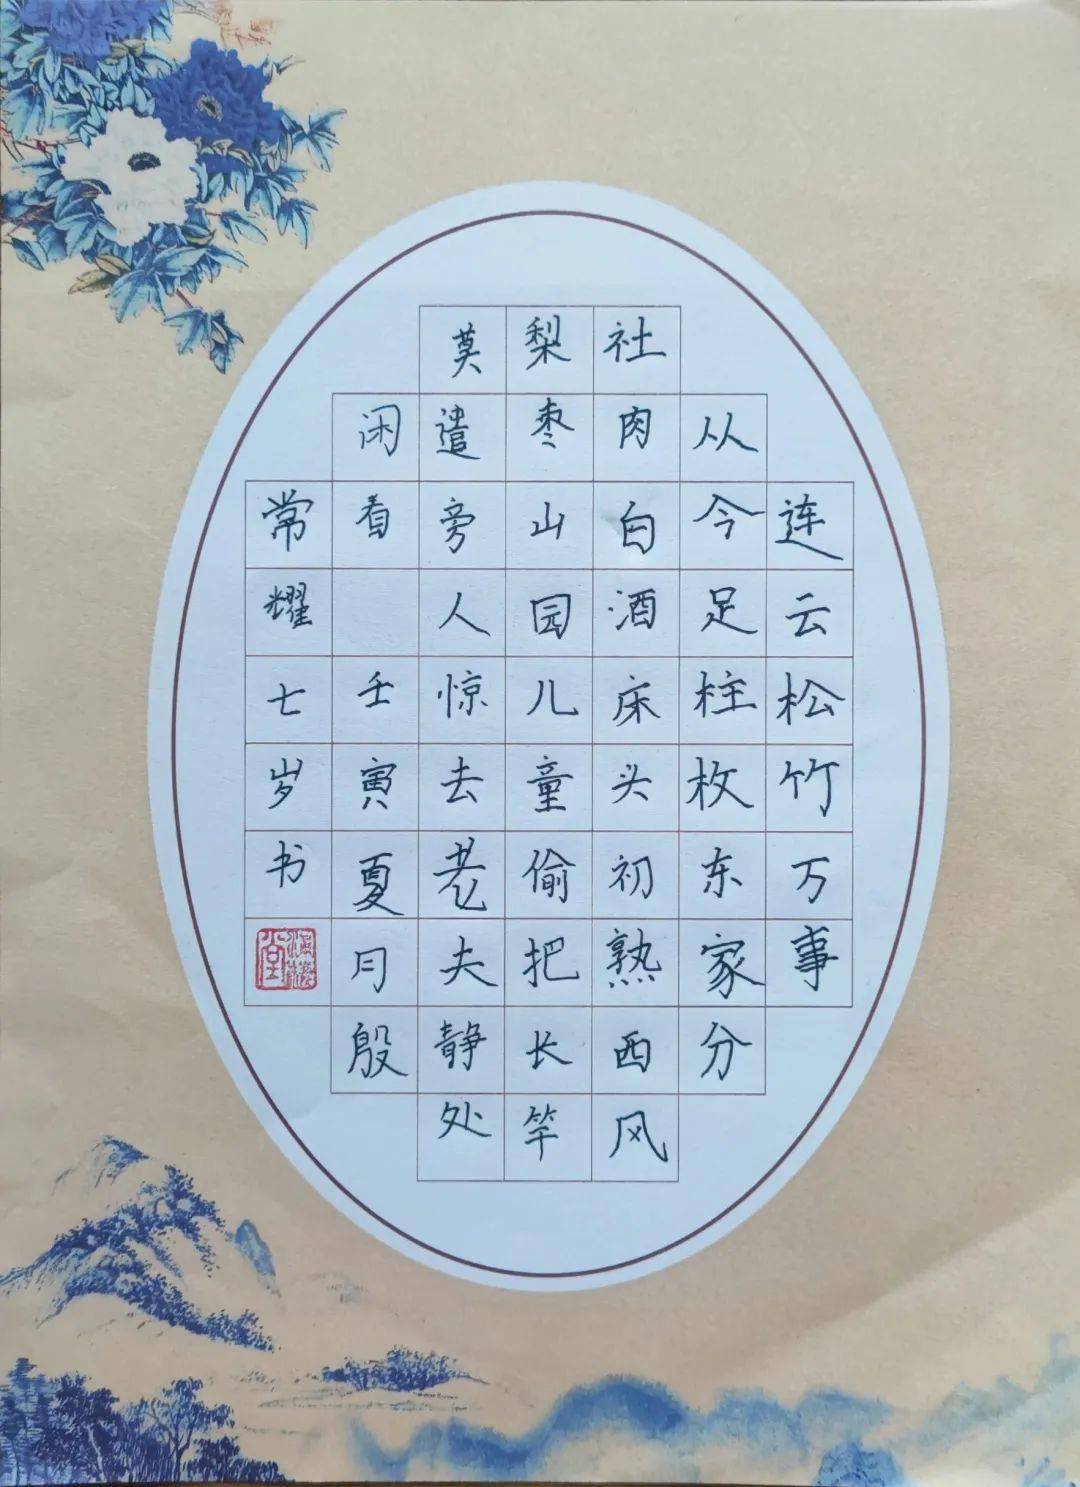 连云松竹万事
从今足柱枚东家分
社肉白酒床头初熟西风
梨枣山园儿童偷把长竿
莫遣旁人惊去老夫静处
闲看 壬寅夏月殷
常耀七岁书